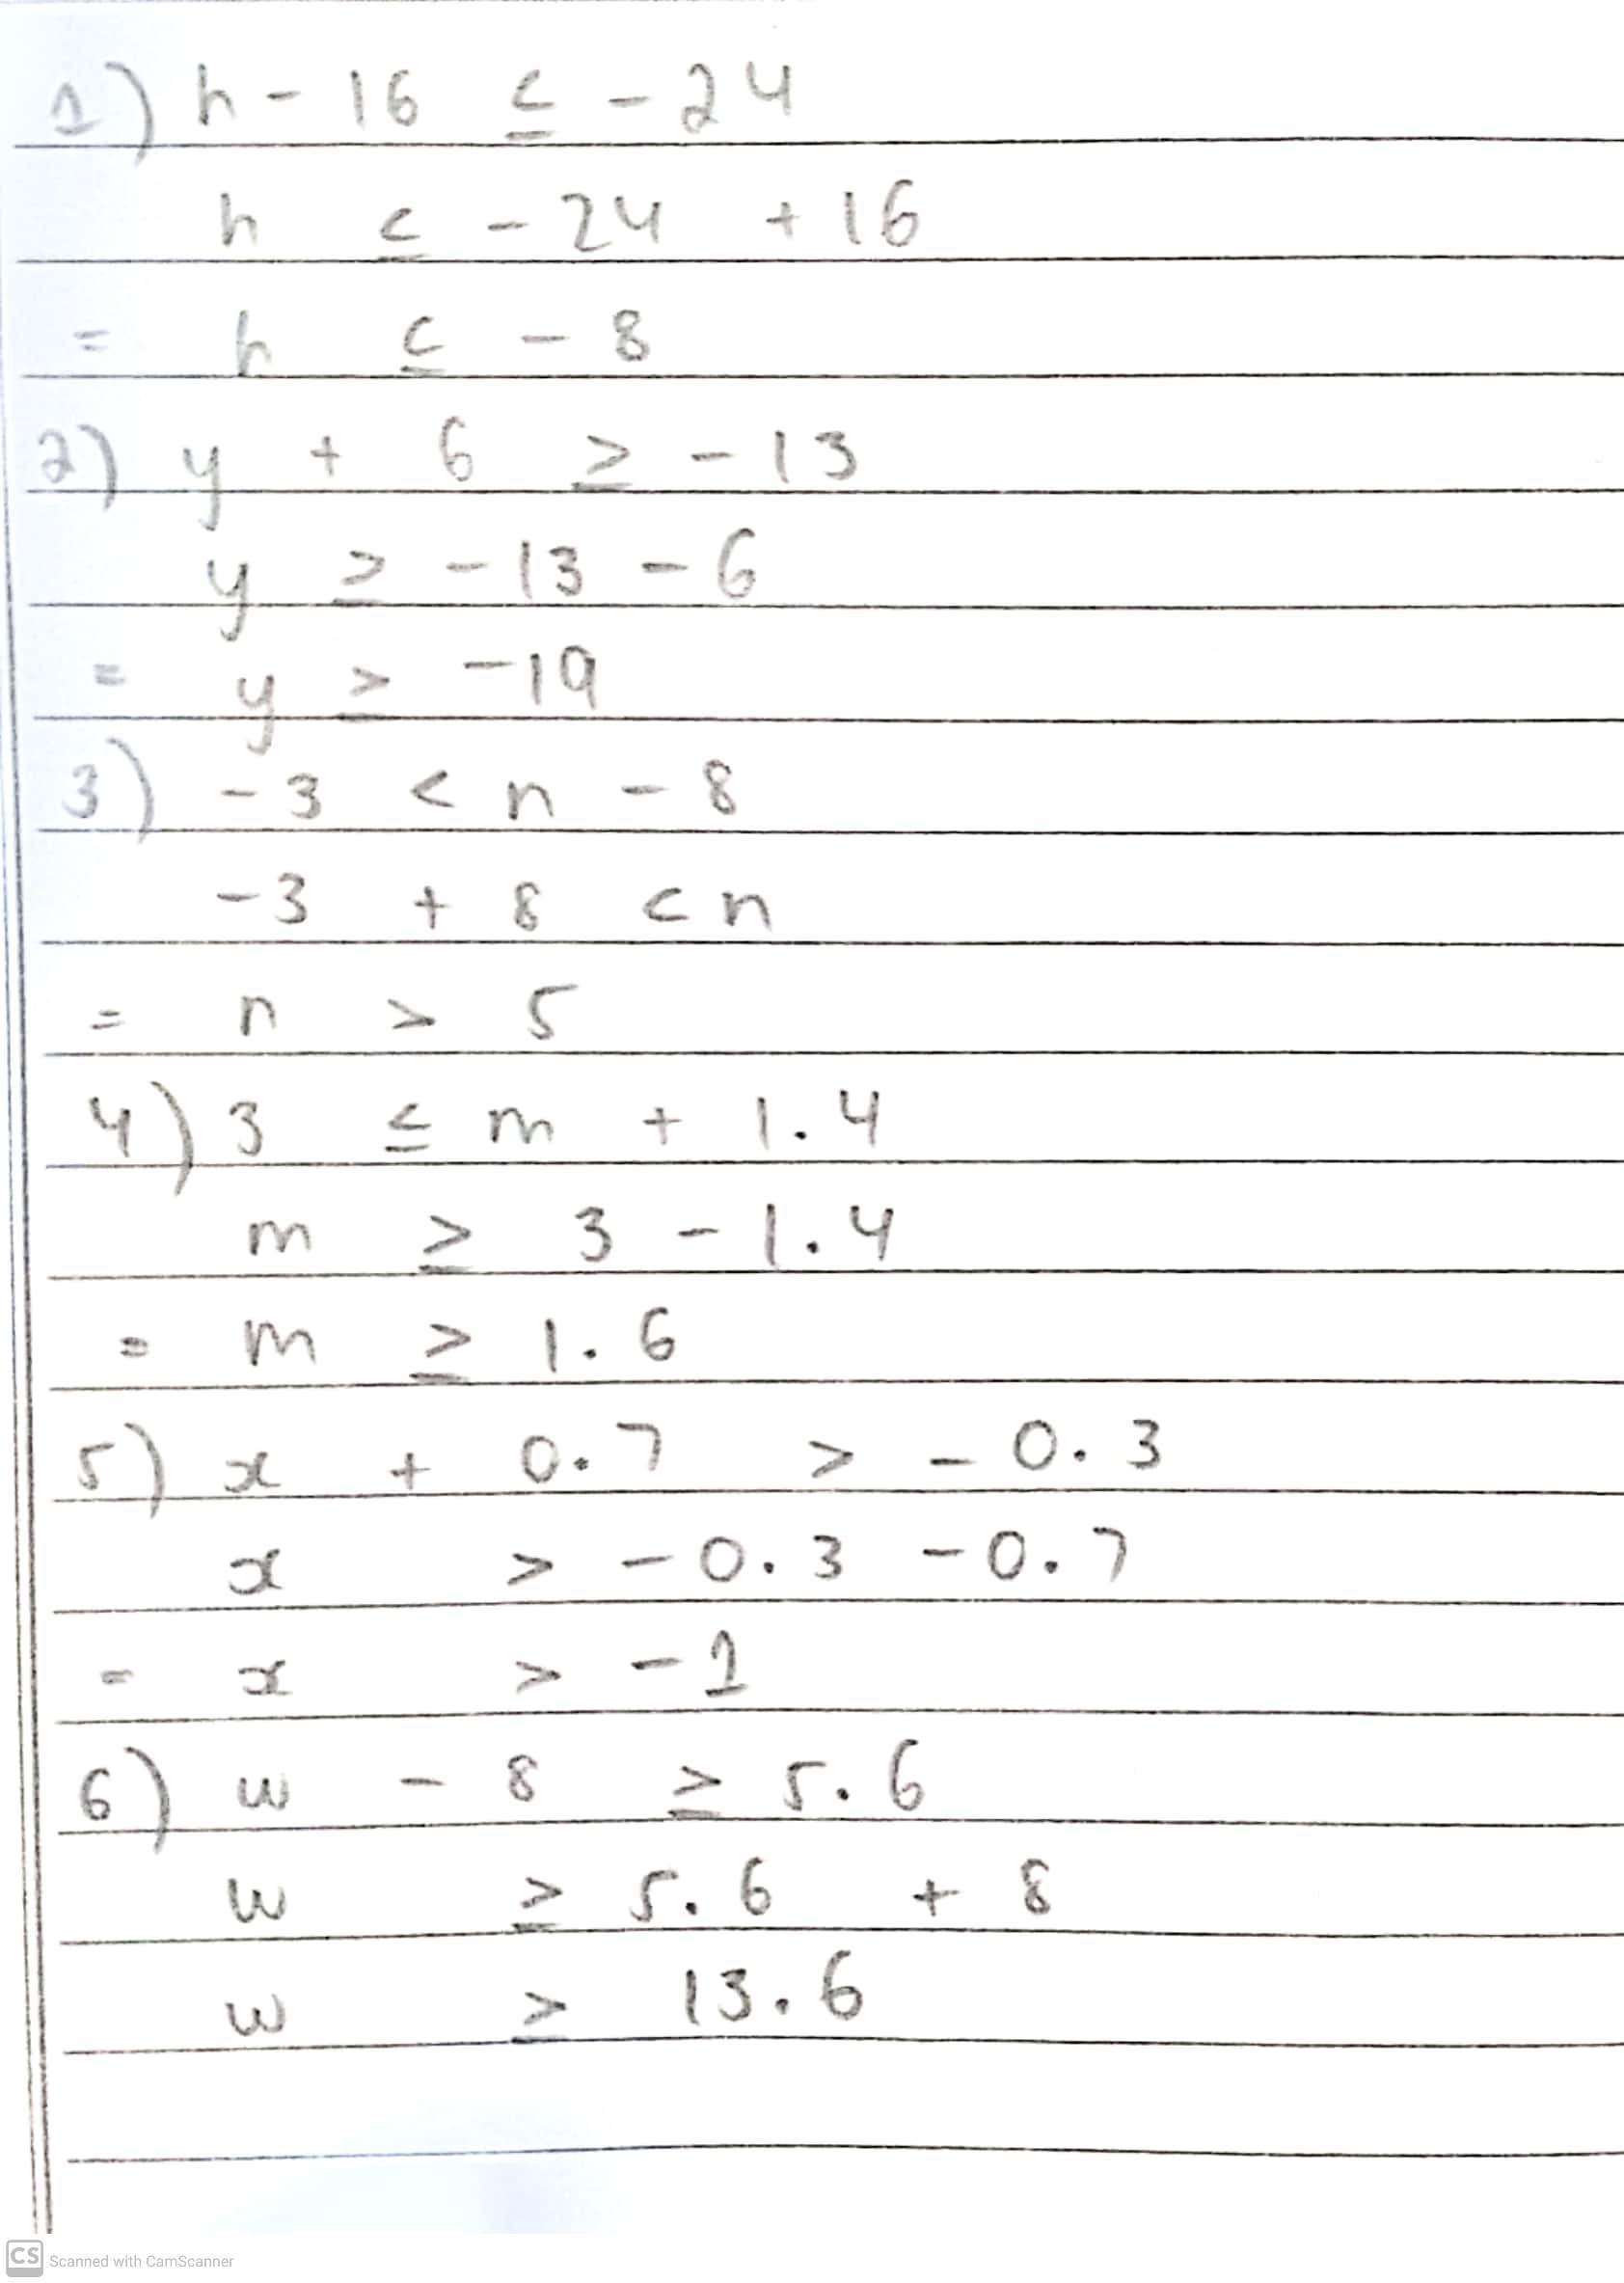 1) h - 16 ≤ - 24
h ≤ - 24 + 16
= h ≤ - 8
2) y + 6 ≥ - 13
y ≥ - 13 - 6
= y ≥ -19
3) - 3 < n - 8
- 3 + 8 < n
= n > 5
4) 3 ≤ m + 1.4
m ≥ 3 - 1.4
= m ≥ 1.6
5) x + 0.7 > - 0.3
x > - 0.3 - 0.7
= x > - 1
6) w - 8 ≥ 5.6
w ≥ 5.6 + 8
w ≥ 13.6
CS Scanned with CamScanner